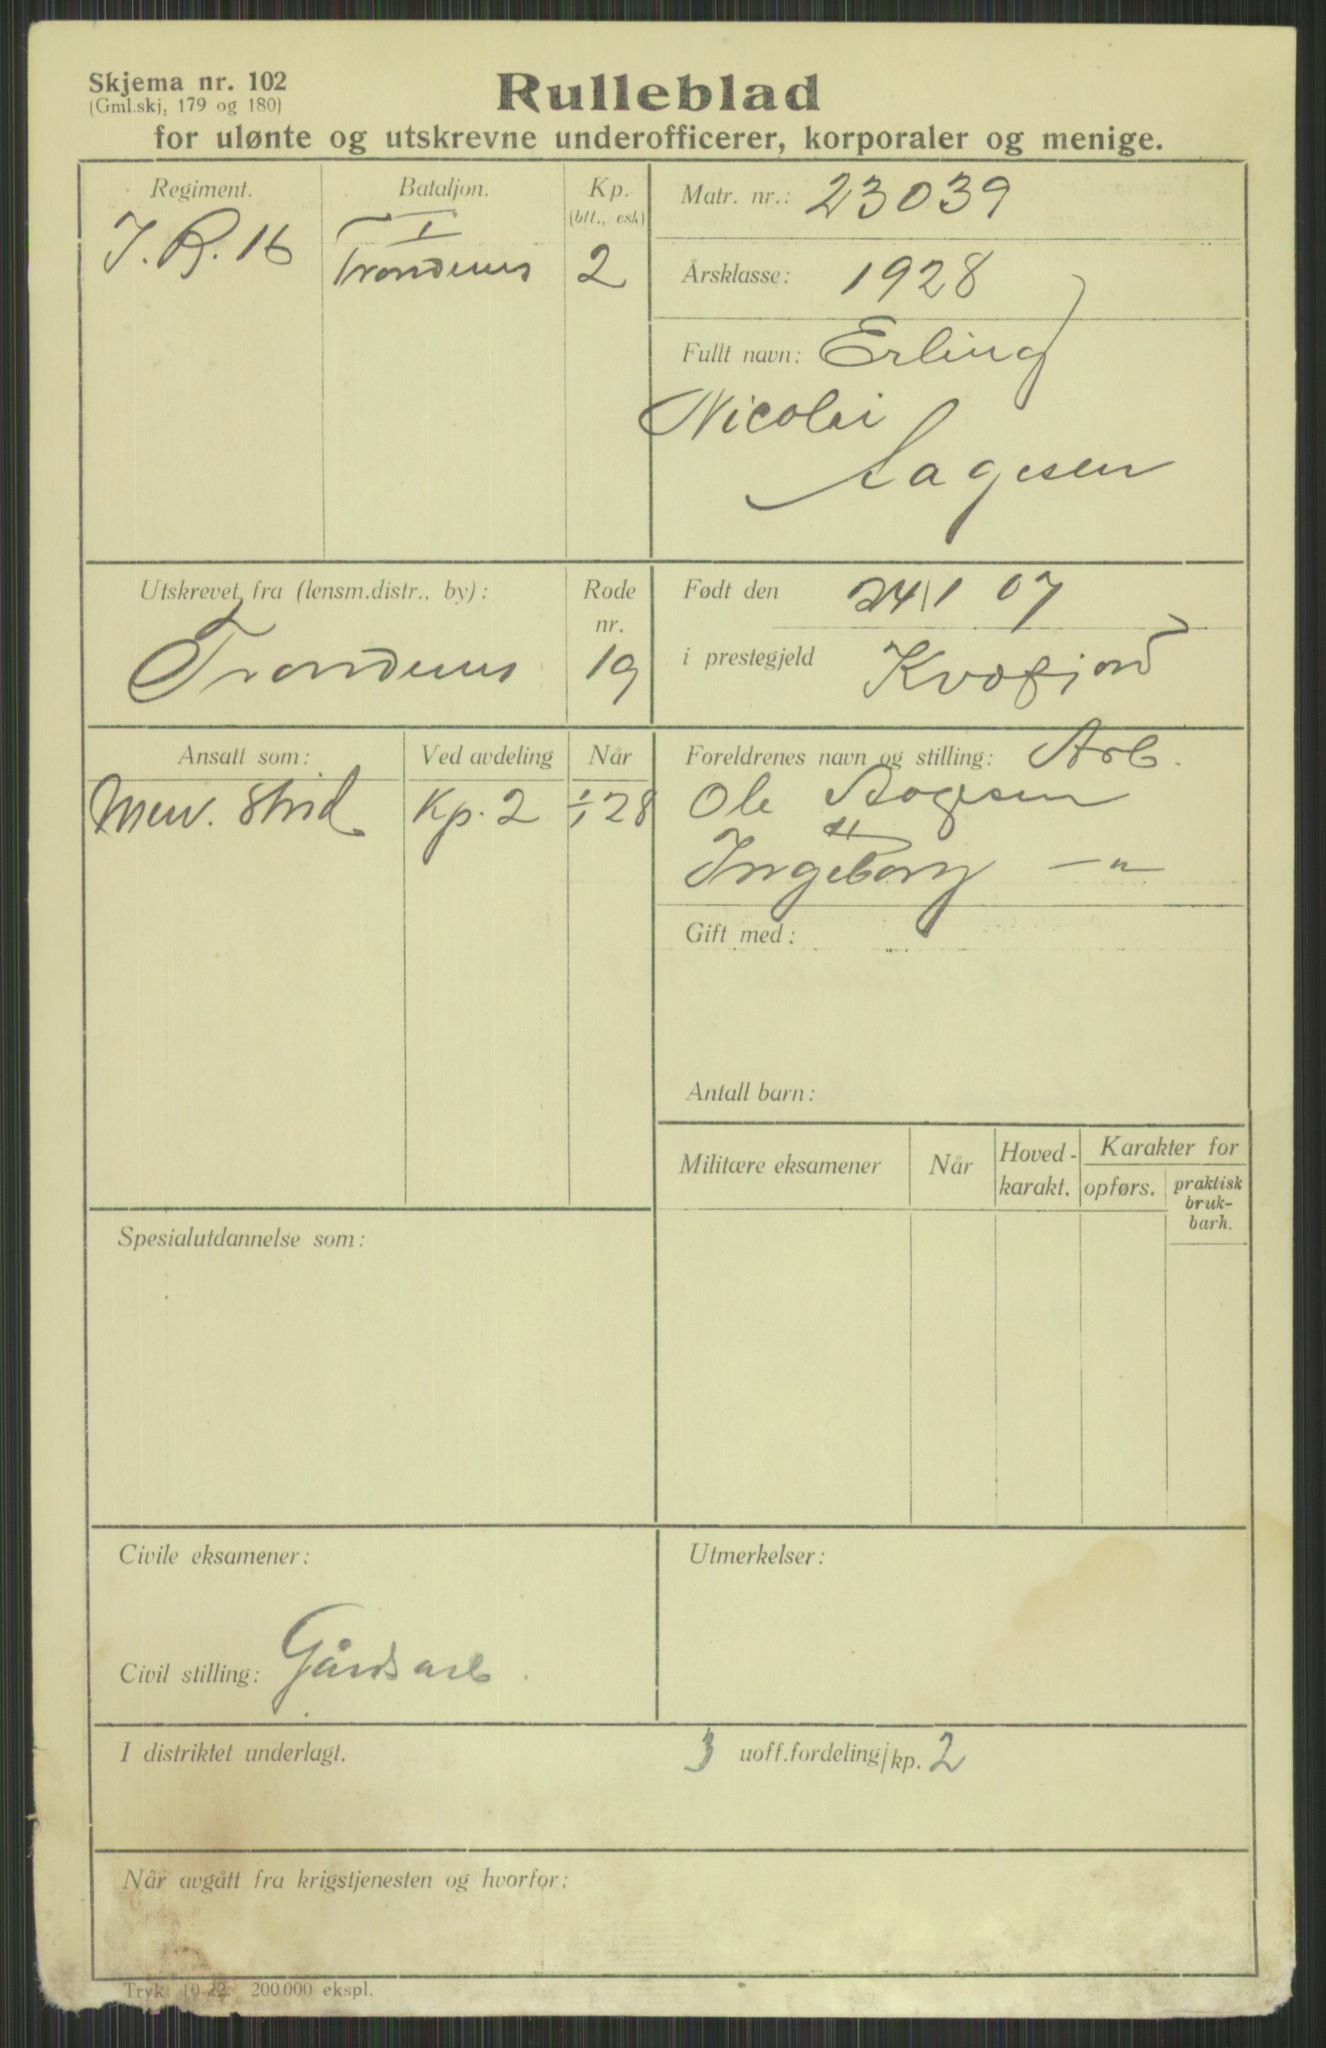 Skjema nr. 102
(Gml.skj. 179 og 180)
Rulleblad
for ulønte og utskrevne underofficerer, korporaler og menige.
Regiment.
I. R. 16
Bataljon.
I
Trondenes
Kp.
(btt., esk)
2
Matr. nr.: 23039
Årsklasse: 1928
Fullt navn: Erling
Nicolai
Aagesen
Utskrevet fra (lensm.distr., by):
Trondenes
Rode
nr.
19
Født den 24/1 07
i prestegjeld Kvæfjord
Ansatt som:
Men. strid
Ved avdeling
Kp. 2
Når
1/1 28
Foreldrenes navn og stilling: Arb.
Ole Aagesen
Ingeborg —"—
Gift med:
Antall barn:
Militære eksamener
Når
Hoved-
karakt.
Karakter for
opførs.
praktisk
bruk-
barh.
Spesialutdannelse som:
Civile eksamener:
Civil stilling: Gårdsarb.
Utmerkelser:
I distriktet underlagt.
3 uoff.fordeling/kp. 2
Når avgått fra krigstjenesten og hvorfor:
Trykt 10-22. 200.000 ekspl.